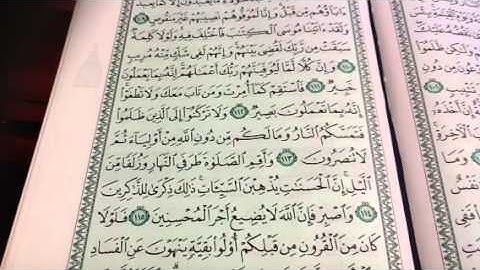 ءَابَآؤُهُم مِّن قَبْلُ وَإِنَّا لَمُوَفُّوهُمْ نَصِيبَهُمْ غَيْرَ مَنقُوصٍ ١٠٩
وَلَقَدْ ءَاتَيْنَا مُوسَى ٱلْكِتَٰبَ فَٱخْتُلِفَ فِيهِ وَلَوْلَا كَلِمَةٌ
سَبَقَتْ مِن رَّبِّكَ لَقُضِىَ بَيْنَهُمْ وَإِنَّهُمْ لَفِى شَكٍّ مِّنْهُ مُرِيبٍ
١١٠ وَإِنَّ كُلًّا لَّمَّا لَيُوَفِّيَنَّهُمْ رَبُّكَ أَعْمَٰلَهُمْ إِنَّهُۥ بِمَا يَعْمَلُونَ
خَبِيرٌ ١١١ فَٱسْتَقِمْ كَمَآ أُمِرْتَ وَمَن تَابَ مَعَكَ وَلَا تَطْغَوْا۟
إِنَّهُۥ بِمَا تَعْمَلُونَ بَصِيرٌ ١١٢ وَلَا تَرْكَنُوٓا۟ إِلَى ٱلَّذِينَ ظَلَمُوا۟
فَتَمَسَّكُمُ ٱلنَّارُ وَمَا لَكُم مِّن دُونِ ٱللَّهِ مِنْ أَوْلِيَآءَ ثُمَّ
لَا تُنصَرُونَ ١١٣ وَأَقِمِ ٱلصَّلَوٰةَ طَرَفَىِ ٱلنَّهَارِ وَزُلَفًا مِّنَ
ٱلَّيْلِ إِنَّ ٱلْحَسَنَٰتِ يُذْهِبْنَ ٱلسَّيِّـَٔاتِ ذَٰلِكَ ذِكْرَىٰ لِلذَّٰكِرِينَ
١١٤ وَٱصْبِرْ فَإِنَّ ٱللَّهَ لَا يُضِيعُ أَجْرَ ٱلْمُحْسِنِينَ ١١٥ فَلَوْلَا
كَانَ مِنَ ٱلْقُرُونِ مِن قَبْلِكُمْ أُو۟لُوا۟ بَقِيَّةٍ يَنْهَوْنَ عَنِ ٱلْفَسَادِ